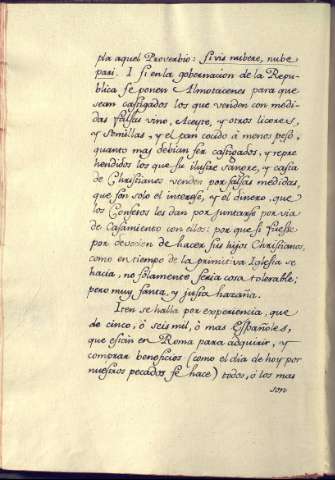 pla aquel Proverbio: si vis nubere, nube
pari. I si en la gobernacion de la Repu-
blica se ponen Almotacenes para que
sean castigados los que venden con medi-
das falsas vino, Aceyte, y otros licores,
y semillas, y el pan cocido á menos peso,
quanto mas debian ser castigados, y repre
hendidos los que su ilustre sangre, y casta
de Christianos venden por falsas medidas,
que son solo el interese, y el dinero, que
los Confesos les dan por juntarse por via
de Casamiento con ellos: por que si fuesse
por devocion de hacer sus hijos Christianos,
como en tiempo de la primitiva Iglesia se
hacia, no sólamente seria cosa tolerable;
pero muy santa, y justa hazaña.
Iten se halla por experiencia, que
de cinco, ó seis mil, ó mas Españoles,
que están en Roma para adquirir, y
comprar beneficios (como el dia de hoy por
nuestros pecados se hace) todos, ó los mas
son